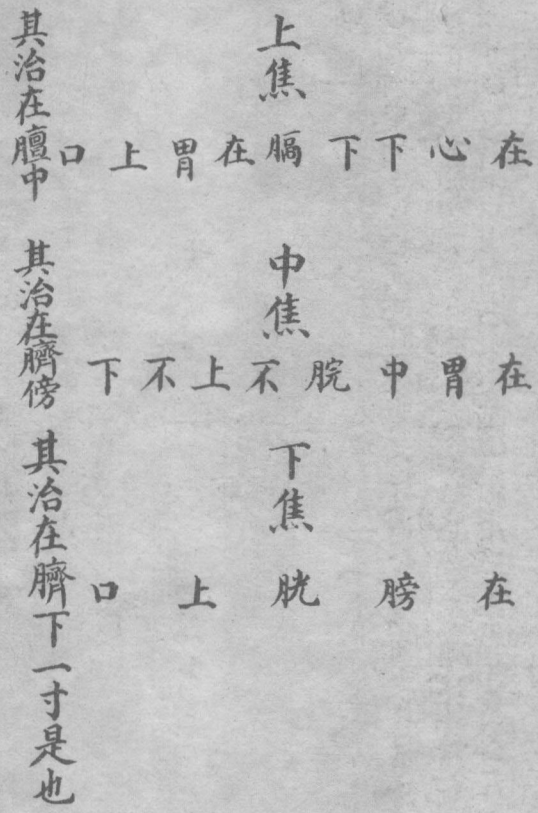 上焦
在心下下膈在胃上口
其治在膻中
中焦
在胃中脘不上不下
其治在臍傍
下焦
在膀胱上口
其治在臍下一寸是也